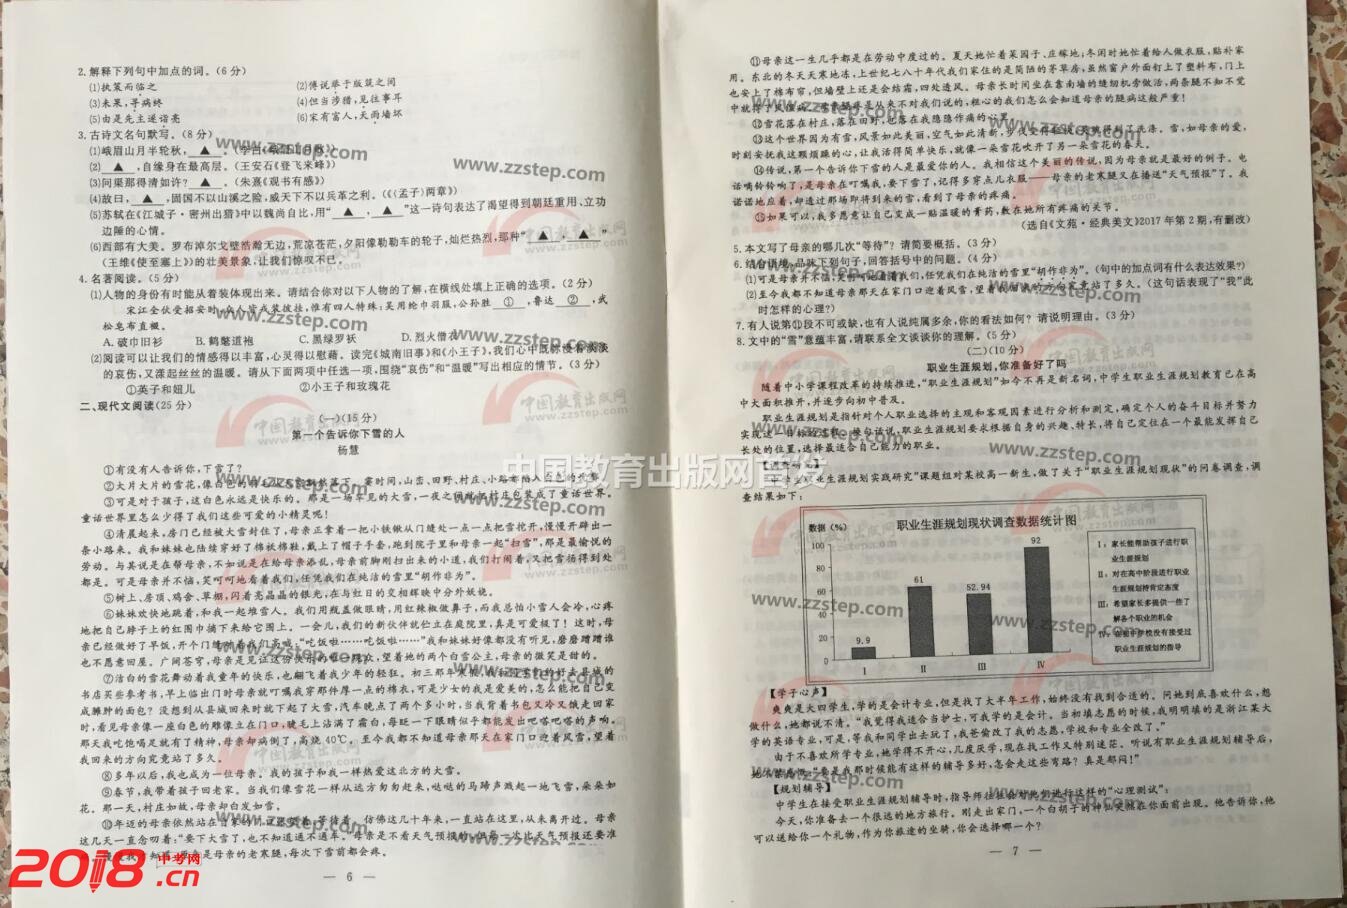 2. 解释下列句中加点的词。(6 分)
(1)执策而临之
(2)傅说举于版筑之间
(3)未果,寻病终
(4)但当涉猎,见往事耳
(5)由是先主遂诣亮
(6)宋有富人,天雨墙坏
3. 古诗文名句默写。(8 分)
(1)峨眉山月半轮秋, ▲ 。
(2) ▲ ,自缘身在最高层。(王安石《登飞来峰》)
(3)问渠那得清如许? ▲ 。(朱熹《观书有感》)
(4)故曰, ▲ ,固国不以山溪之险,威天下不以兵革之利。(《〈孟子〉两章》)
(5)苏轼在《江城子·密州出猎》中以魏尚自比,用“ ▲ , ▲ ”这一诗句表达了渴望得到朝廷重用、立功
边陲的心情。
(6)西部有大美。罗布淖尔戈壁浩瀚无边,荒凉苍茫,夕阳像勒勒车的轮子,灿烂热烈,那种“ ▲ , ▲ ”
(王维《使至塞上》)的壮美景象,让我们惊叹不已。
4. 名著阅读。(5 分)
(1)人物的身份有时能从着装体现出来。请结合你对以下人物的了解,在横线处填上正确的选项。(2 分)
宋江全伙受招安时,众人皆戎装披挂,惟有四人特殊:吴用纶巾羽服,公孙胜 ① ,鲁达 ② ,武
松皂布直裰。
A. 破巾旧衫 B. 鹤氅道袍 C. 黑绿罗袄 D. 烈火僧衣
(2)阅读可以让我们的情感得以丰富,心灵得以慰藉。读完《城南旧事》和《小王子》,我们心中既弥漫着淡淡
的哀伤,又漾起丝丝的温暖。请从下面两项中任选一项,围绕“哀伤”和“温暖”写出相应的情节。(3 分)
①英子和妞儿 ②小王子和玫瑰花
二、现代文阅读(25 分)
(一)(15 分)
第一个告诉你下雪的人
杨慧
①有没有人告诉你,下雪了?
②大片大片的雪花,像白色的 霎时间,山峦、田野、村庄、小路都
③可是对于孩子,这白色永远是快乐的。那是一场罕见的大雪,一夜之间就把村庄包装成了童话世界。
童话世界里怎么少得了我们这些可爱的小精灵呢!
④清晨起来,房门已经被大雪封住了,母亲正拿着一把小铁锹从门缝处一点一点把雪挖开,慢慢开辟出一
条小路来。我和妹妹也陆续穿好了棉袄棉鞋,戴上了帽子手套,跑到院子里和母亲一起“扫雪”,那是最愉悦的
劳动。与其说是在帮母亲,不如说是在给母亲添乱,母亲前脚刚扫出来的小道,我们打闹着,又把雪扬得到处
都是。可是母亲并不恼,笑呵呵地看着我们,任凭我们在纯洁的雪里“胡作非为”。
⑤树上、房顶、鸡舍、草棚,闪着亮晶晶的银光,在与红日的交相辉映中分外妖娆。
⑥妹妹欢快地跳着,和我一起堆雪人。我们用瓶盖做眼睛,用红辣椒做鼻子,而我总怕小雪人会冷,心疼
地把自己脖子上的红围巾摘下来给它围上。一会儿,我们的新伙伴就伫立在庭院里,真是可爱极了!这时,母
亲已经做好了早饭,开个门缝 “吃饭啦……吃饭啦……”我和妹妹好像都没有听见,磨磨蹭蹭谁
也不愿意回屋。 望着她的两个白雪公主,母亲的微笑是甜的。
⑦洁白的雪花舞动着我童年的快乐,也翻飞着我少年的轻狂。初三那年寒假,
书店买些参考书,早上临出门时母亲就叮嘱我穿那件厚一点的棉衣,可是少女的我是爱美的,怎么能把自己变
成臃肿的面包?没想到从县城回来时就下起了大雪,汽车晚点了两个多小时,当我背着书包又冷又饿走回家
时,看见母亲像一座白色的雕像立在门口,睫毛上沾满了霜白,每眨一下眼睛似乎都能发出吧嗒吧嗒的声响。
那天我吃饱喝足就有了精神,母亲却病倒了,高烧 40℃,至今我都不知道母亲那天在家门口迎着风雪,望着
我回来的方向究竟站了多久。
⑧多年以后,我也成为一位母亲。我的孩子和我一样热爱这北方的大雪。
⑨春节,我带着孩子回老家。当我们像雪花一样从远方匆匆赶来,哒哒的马蹄声溅起一地飞雪,朵朵如
花。那一天,村庄如故,母亲却白发如雪。
⑩年迈的母亲依然站在自家的门口张望着、等待着,仿佛这几十年来,一直站在这里,从未离开过。母亲
这几天一直念叨着:“要下大雪了,也不知道通不通车。”母亲是不看天气预报的,但每一次比天气预报还要准
是母亲的老寒腿,每次下雪前都会疼。
— 6 —
⑪母亲这一生几乎都是在劳动中度过的。夏天她忙着菜园子、庄稼地;冬闲时她忙着给人做衣服,贴补家
用。东北的冬天天寒地冻,上世纪七八十年代我们家住的是简陋的茅草房,虽然窗户外面钉上了塑料布,门上
也安上了棉布帘,但墙壁上还是会结霜,四处透风。母亲长时间坐在靠南墙的缝纫机旁做活,两条腿不知不觉
中就 从来不对我们说的,粗心的我们怎么会知道母亲的腿病这般严重!
⑫雪花落在村庄,落在田野,也落在我隐隐作痛的心里。
⑬这个世界因为有雪,风景如此美丽,空气如此清新, 雪,如母亲的爱,
时刻安抚我这颗烦躁的心,让我活得简单快乐,就像一朵雪花吹开了另一朵雪花的春天。
⑭传说,第一个告诉你下雪的人是最爱你的人。我相信这个美丽的传说,因为母亲就是最好的例子。电
话嘀铃铃响了,是母亲在叮嘱我,要下雪了,记得多穿点儿衣服——母亲的老寒腿又在播送“天气预报”了。我
诺诺地应着,却透过那场即将到来的雪,看到了母亲的疼痛。
⑮如果可以,我多愿意让自己变成一贴温暖的膏药,敷在她所有疼痛的关节。
(选自《文苑·经典美文》2017 年第 2 期,有删改)
5. 本文写了母亲的哪几次“等待”?请简要概括。(3 分)
6. 结合语境,品味下列句子,回答括号中的问题。(4 分)
(1)可是母亲并不恼,笑呵呵地看着我们,任凭我们在纯洁的雪里“胡作非为”。(句中的加点词有什么表达效果?)
(2)至今我都不知道母亲那天在家门口迎着风雪,望着我回来的方向究竟站了多久。(这句话表现了“我”此
时怎样的心理?)
7. 有人说第⑪段不可或缺,也有人说纯属多余,你的看法如何?请说明理由。(3 分)
8. 文中的“雪”意蕴丰富,请联系全文谈谈你的理解。(5 分)
(二)(10 分)
职业生涯规划,你准备好了吗
随着中小学课程改革的持续推进,“职业生涯规划”如今不再是新名词,中学生职业生涯规划教育已在高
中大面积推开,并逐步向初中普及。
职业生涯规划是指针对个人职业选择的主观和客观因素进行分析和测定,确定个人的奋斗目标并努力
实现这一目标的过程。换句话说,职业生涯规划要求根据自身的兴趣、特长,将自己定位在一个最能发挥自己
长处的位置,选择最适合自己能力的职业。
职业生涯规划实践研究”课题组对某校高一新生,做了关于“职业生涯规划现状”的问卷调查,调
查结果如下:
职业生涯规划现状调查数据统计图
数据(%)
100
80
60
40
20
0
9.9
61
52.94
92
Ⅰ Ⅱ Ⅲ Ⅳ
Ⅰ:家长能帮助孩子进行职
业生涯规划
Ⅱ:对在高中阶段进行职业
生涯规划持肯定态度
Ⅲ:希望家长多提供一些了
解各个职业的机会
Ⅳ:在初中学校没有接受过
职业生涯规划的指导
【学子心声】
爽爽是大四学生,学的是会计专业,但是找了大半年工作,始终没有找到合适的。问她到底喜欢什么,想
做什么,她都说不清。“我觉得我适合当护士,可我学的是会计。当初填志愿的时候,我明明填的是浙江某大
学的英语专业,可是,等我和同学出去玩了,我爸偷改了我的志愿,学校和专业全改了。”
由于不喜欢所学专业,她学得不开心,几度厌学,现在找工作又特别迷茫。听说有职业生涯规划辅导后,
“要是我那时候能有这样的辅导多好,怎会走这些弯路?真是郁闷!”
【规划辅导】
中学生在接受职业生涯规划辅导时,指导师往往会对他们进行这样的“心理测试”:
今天,你准备去一个很远的地方旅行。刚走出家门,一个白胡子的神仙突然在你面前出现。他告诉你,他
可以送给你一个礼物,作为你旅途的坐骑,你会选择哪一个?
— 7 —
中国教育出版网首发
中国教育出版网
www.zzstep.com
2018中考网.cn